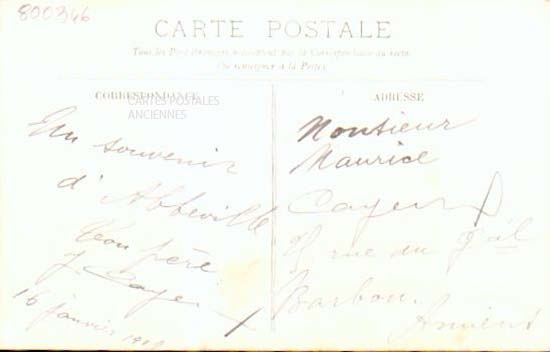 800346
CARTE POSTALE
Tous les Pays étrangers n'acceptent pas la Correspondance au recto
(Se renseigner à la Poste)
CORRESPONDANCE
CARTES POSTALES
ANCIENNES
En souvenir
d'Abbeville
père
J. Cayeux
16 janvier
ADRESSE
Monsieur
Maurice
Cayeux
rue du Gal
Barbou.
Amiens